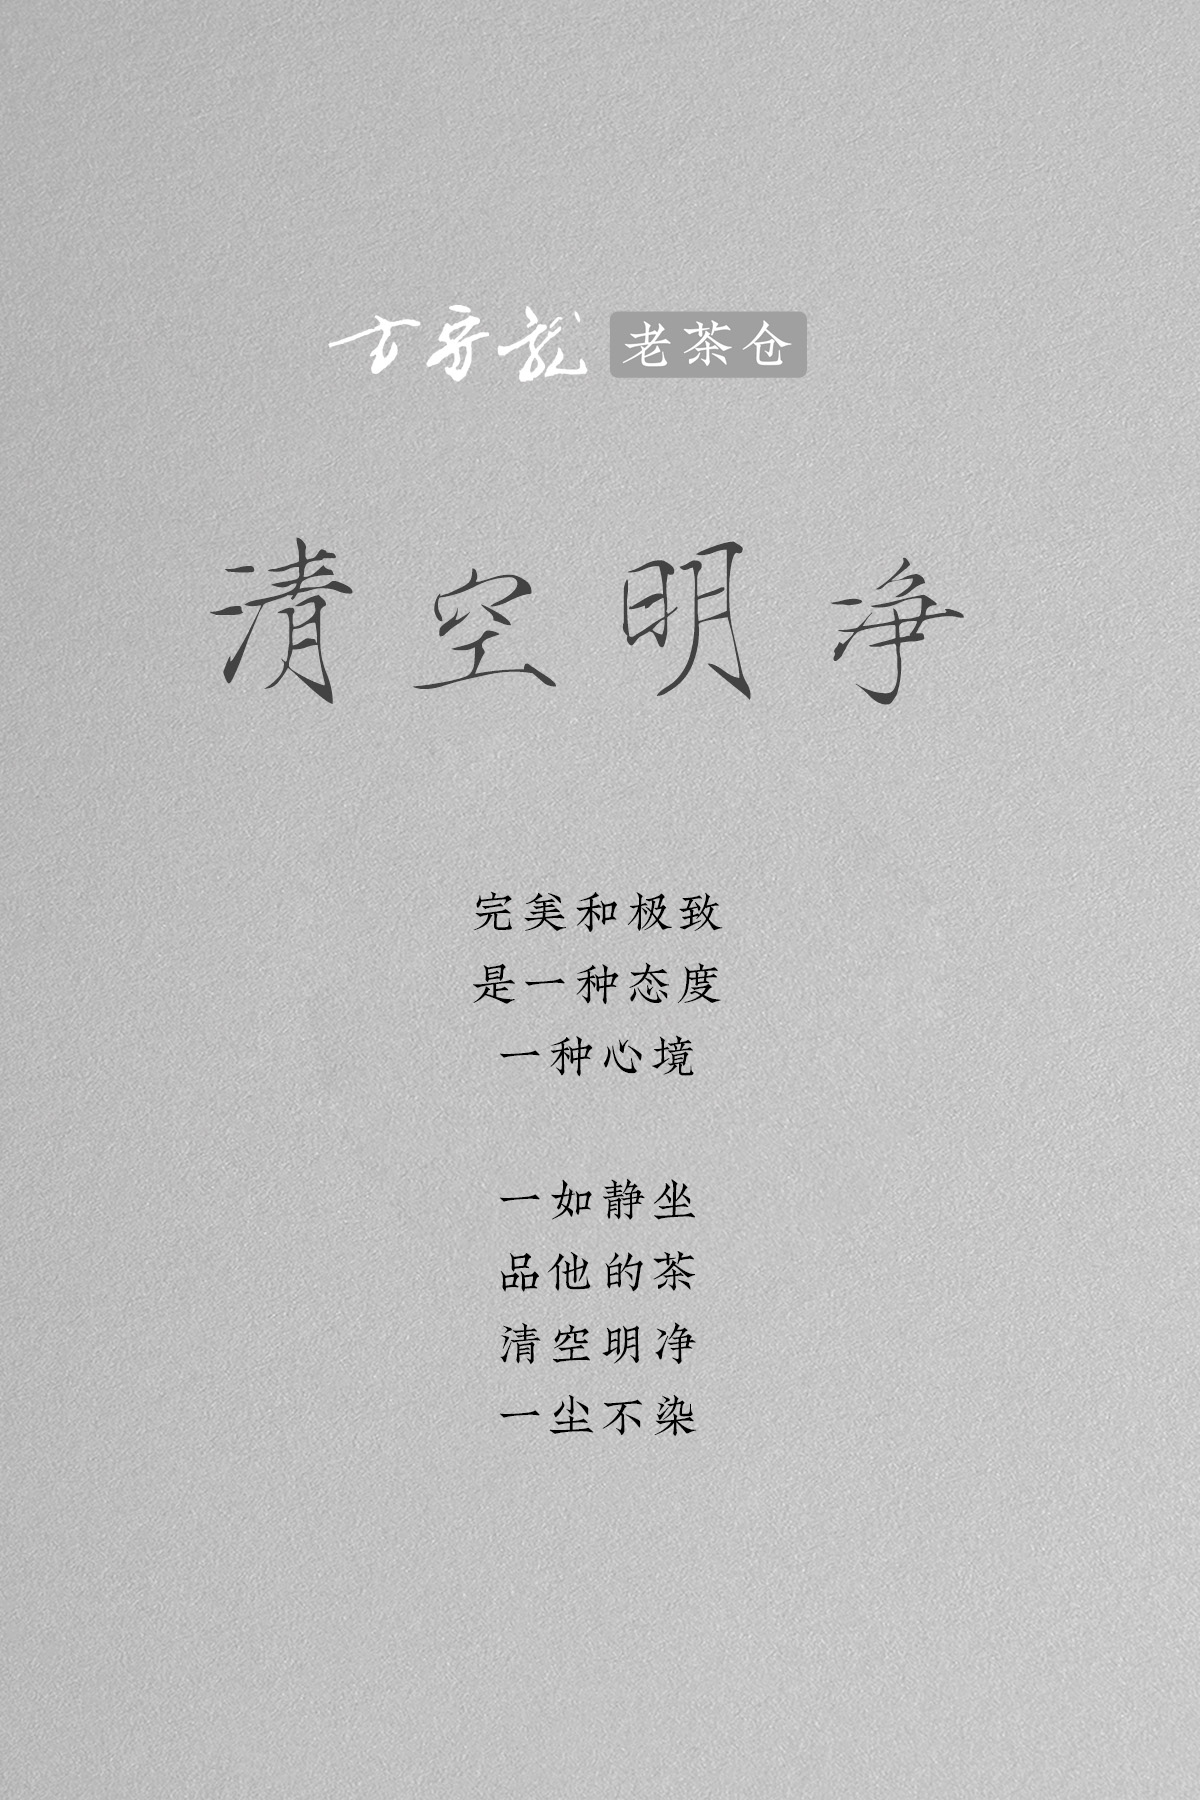 老茶仓
清空明净
完美和极致
是一种态度
一种心境
一如静坐
品他的茶
清空明净
一尘不染